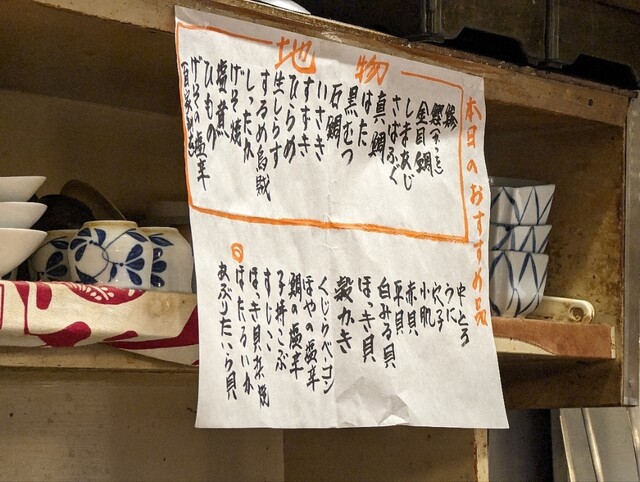 本日のおすすめ品
地物
鯵
金目鯛
しまあじ
さばふぐ
真鯛
はた
黒むつ
石鯛
いさき
すずき
ひらめ
生しらす
するめ烏賊
しったか
げそ焼
塩煮
ひもの
げその塩辛
中とろ
うに
穴子
小肌
赤貝
平貝
白みる貝
ほっき貝
殻かき
くじらベーコン
ほやの塩辛
鯛の塩辛
子持こぶ
すじこ
ほっき貝素焼
ほたるいか
あぶりたいら貝